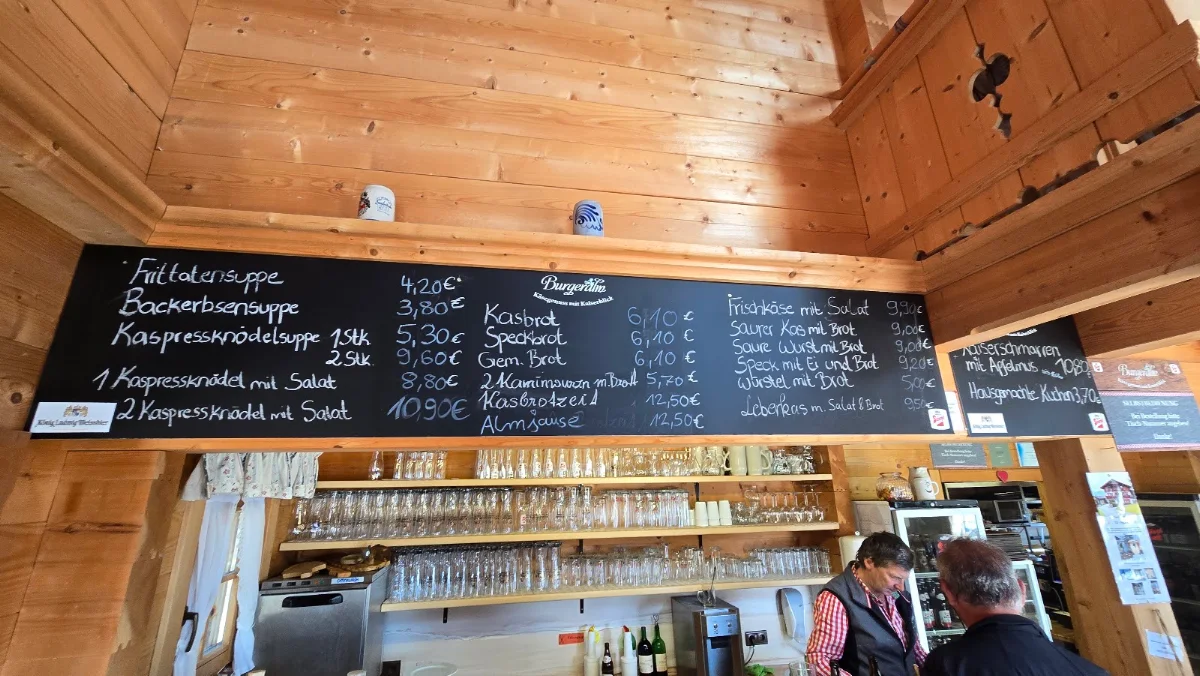 Frittatensuppe 4,20€
Backerbsensuppe 3,80€
Kaspressknödelsuppe 1 Stk. 5,30€
2 Stk. 9,60€
1 Kaspressknödel mit Salat 8,80€
2 Kaspressknödel mit Salat 10,90€
König Ludwig Weissbier
Burgeralm
Käsegenuss mit Kaiserblick
Kasbrot 6,10€
Speckbrot 6,10€
Gem. Brot 6,10€
2 Kaminwurzn m. Brot 5,70€
Kasbrotzeit 12,50€
Almjause 12,50€
Frischkäse mit Salat 9,90€
Saurer Kas mit Brot 9,00€
Saure Wurst mit Brot 9,00€
Speck mit Ei und Brot 9,20€
Würstel mit Brot 5,00€
Leberkas m. Salat & Brot 9,50€
Kaiserschmarren
mit Apfelmus 10,80€
Hausgmachte Kuchen 3,70€
Burgeralm
SELBSTBEDIENUNG
Bei Bestellung bitte
Tisch Nummer angeben!
Danke!